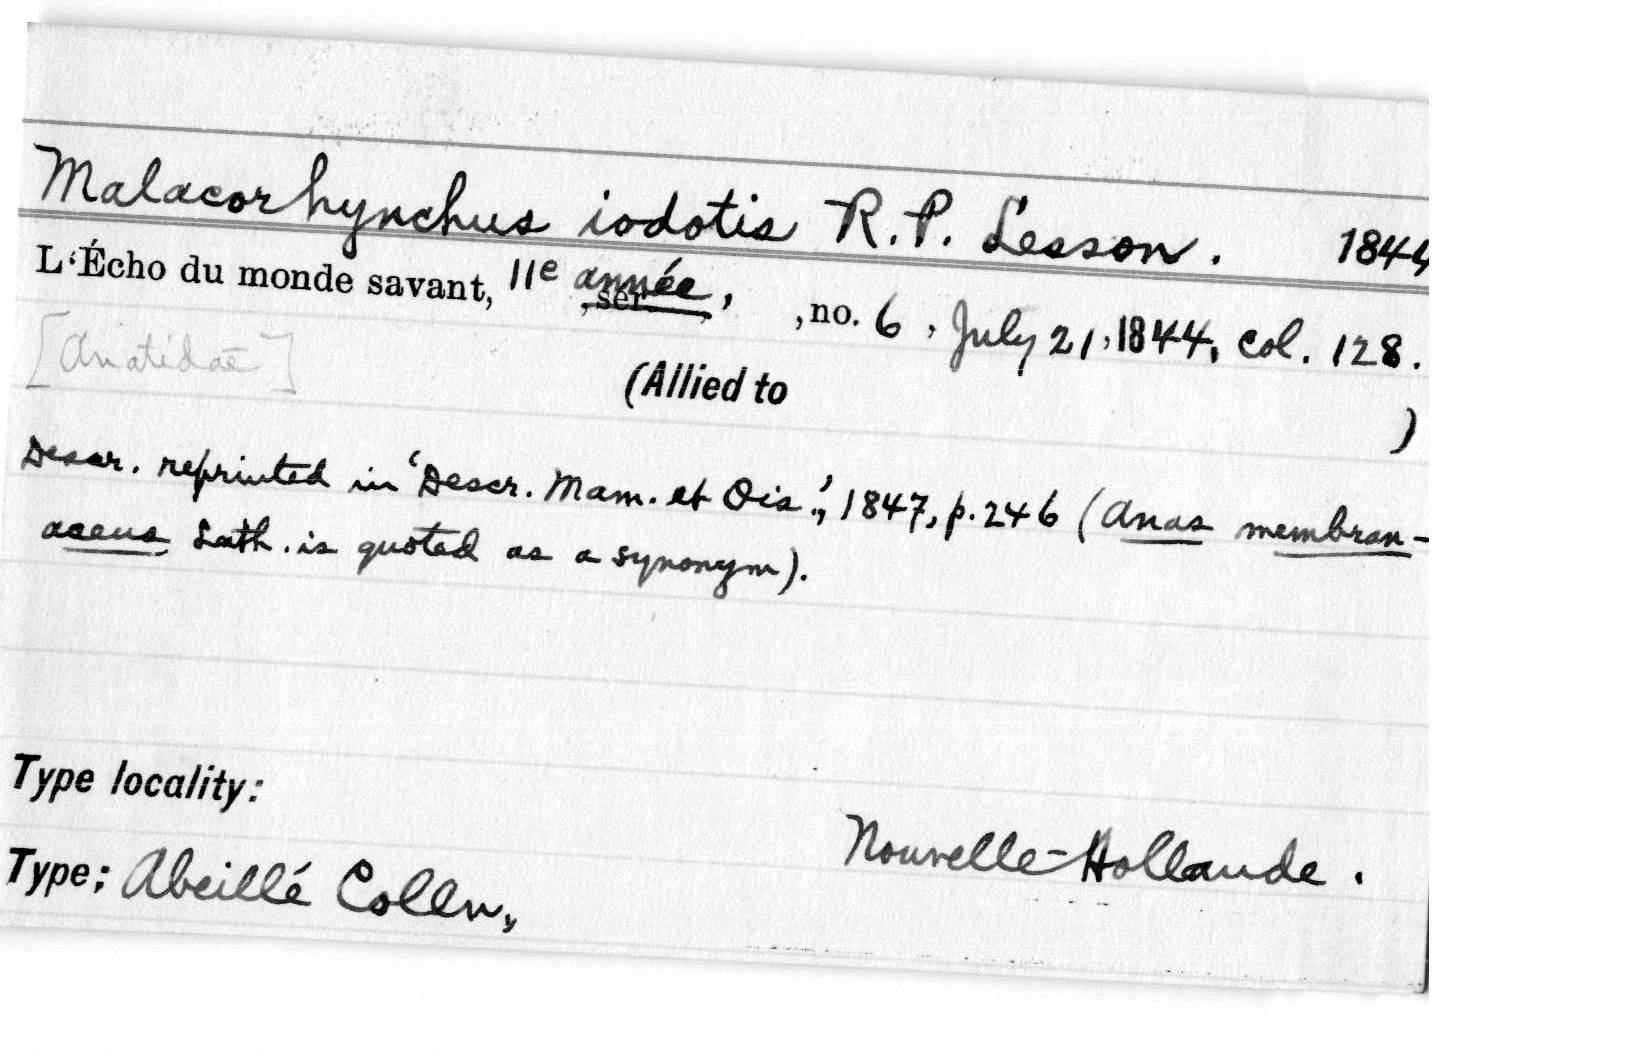 Malacorhynchus iodotis R.P. Lesson. 1844
L'Écho du monde savant, 11e année, , sér. , , no. 6, July 21, 1844, col. 128.
[Anatidae]
(Allied to )
Descr. reprinted in 'Descr. Mam. et Ois.', 1847, p. 246 (Anas membran-
aceus Lath. is quoted as a synonym).
Type locality:
Nouvelle-Hollande.
Type; Abeillé Colln.,